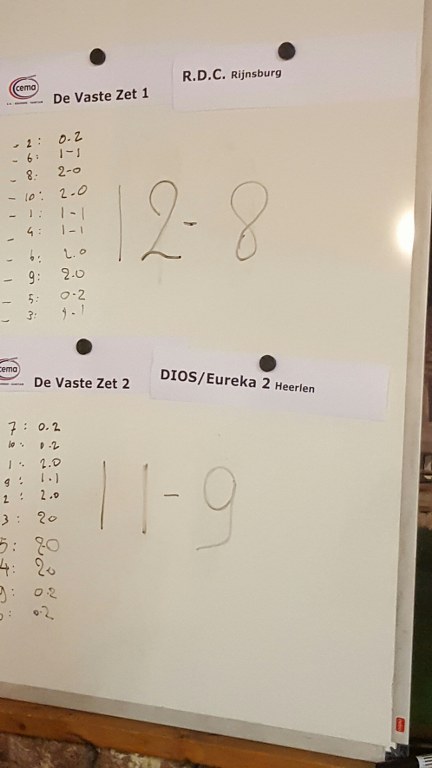 cema De Vaste Zet 1
R.D.C. Rijnsburg
- 2: 0.2
- 6: 1-1
- 8: 2-0
- 10: 2.0
- 1: 1-1
- 4: 1-1
- 6: 2.0
- 9: 2.0
- 5: 0-2
- 3: 1-1
12-8
cema De Vaste Zet 2
DIOS/Eureka 2 Heerlen
7: 0.2
10: 0.2
1: 2.0
9: 1.1
2: 2.0
3: 20
5: 20
4: 20
9: 0.2
: 0.2
11-9